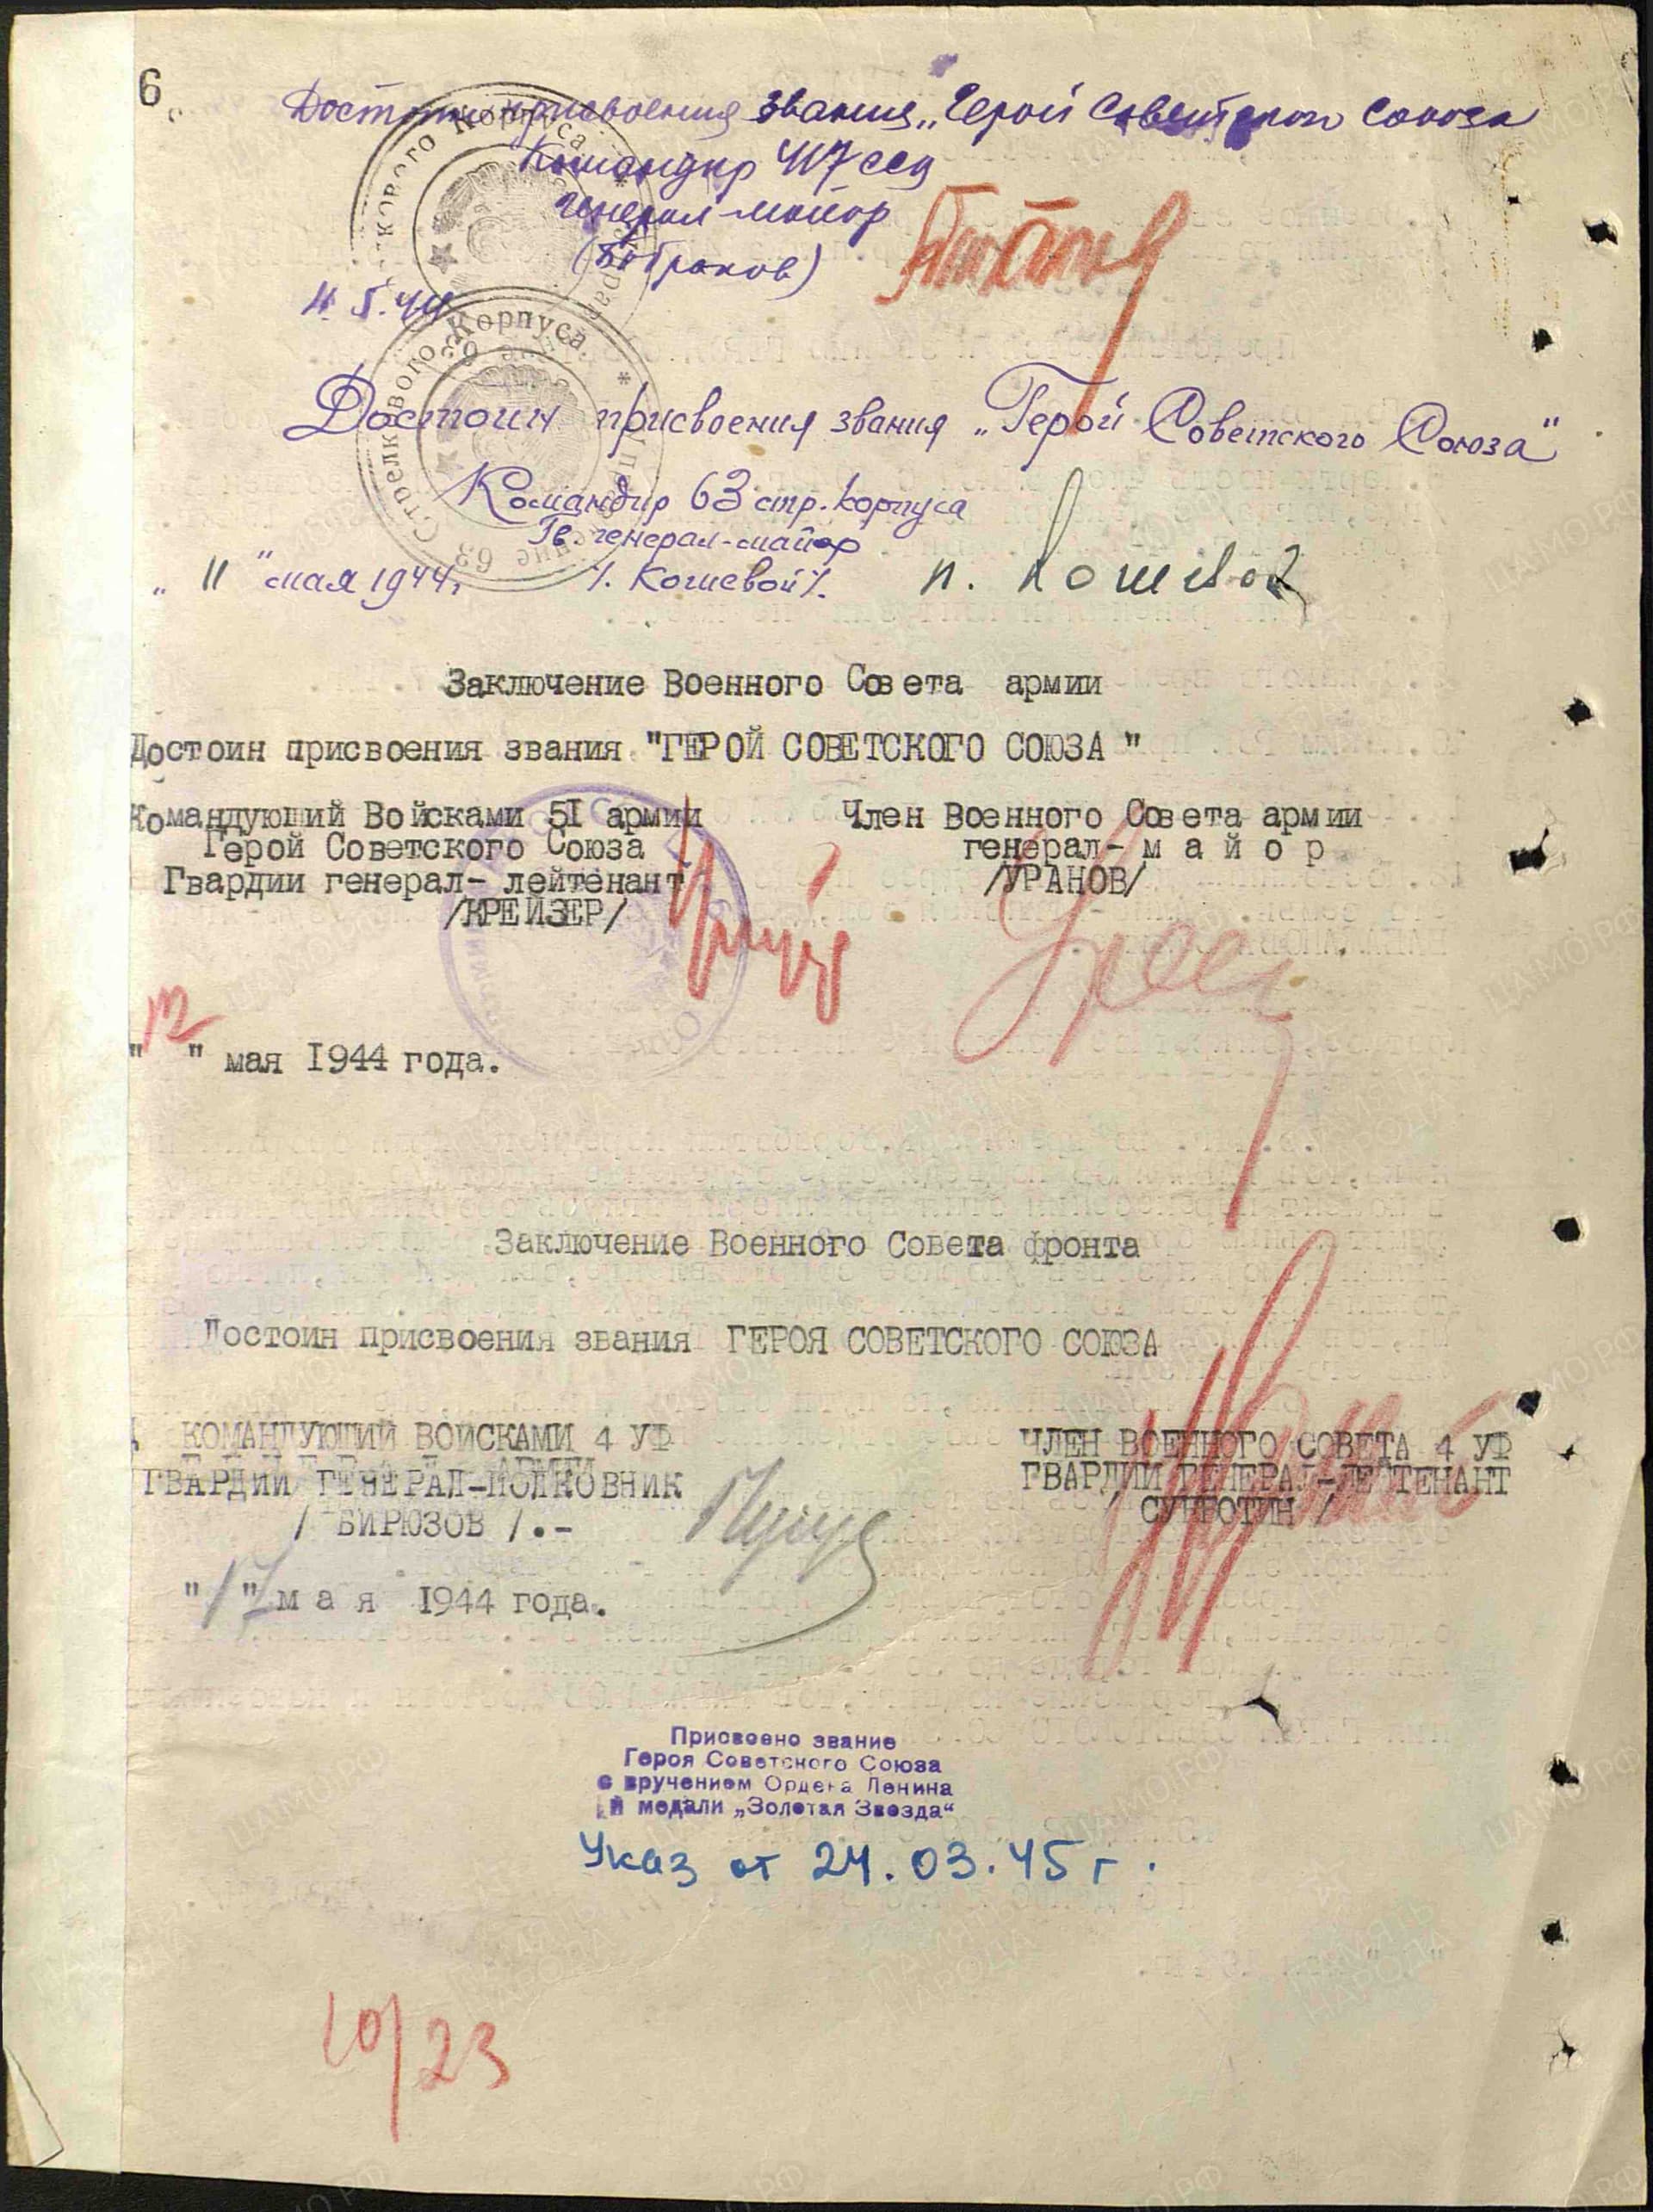 6
Достоин присвоения звания „Герой Советского Союза
Командир 417 ссд
генерал-майор
(Бобраков)
11.5.44
Достоин присвоения звания „Герой Советского Союза"
Командир 63 стр. корпуса
Гв. генерал-майор
„11" мая 1944 г. /. Кошевой /. П. Кошевой
Заключение Военного Совета армии
Достоин присвоения звания "ГЕРОЙ СОВЕТСКОГО СОЮЗА"
Командующий Войсками 51 армии
Герой Советского Союза
Гвардии генерал-лейтенант
/КРЕЙЗЕР/
Член Военного Совета армии
генерал-майор
/УРАНОВ/
"12" мая 1944 года.
Заключение Военного Совета фронта
Достоин присвоения звания ГЕРОЯ СОВЕТСКОГО СОЮЗА
КОМАНДУЮЩИЙ ВОЙСКАМИ 4 УФ
ГВАРДИИ ГЕНЕРАЛ-ПОЛКОВНИК
/ БИРЮЗОВ /.-
ЧЛЕН ВОЕННОГО СОВЕТА 4 УФ
ГВАРДИИ ГЕНЕРАЛ-ЛЕЙТЕНАНТ
/ СУББОТИН /
"17" мая 1944 года.
Присвоено звание
Героя Советского Союза
с вручением Ордена Ленина
и медали „Золотая Звезда"
Указ от 24.03.45 г.
10/23